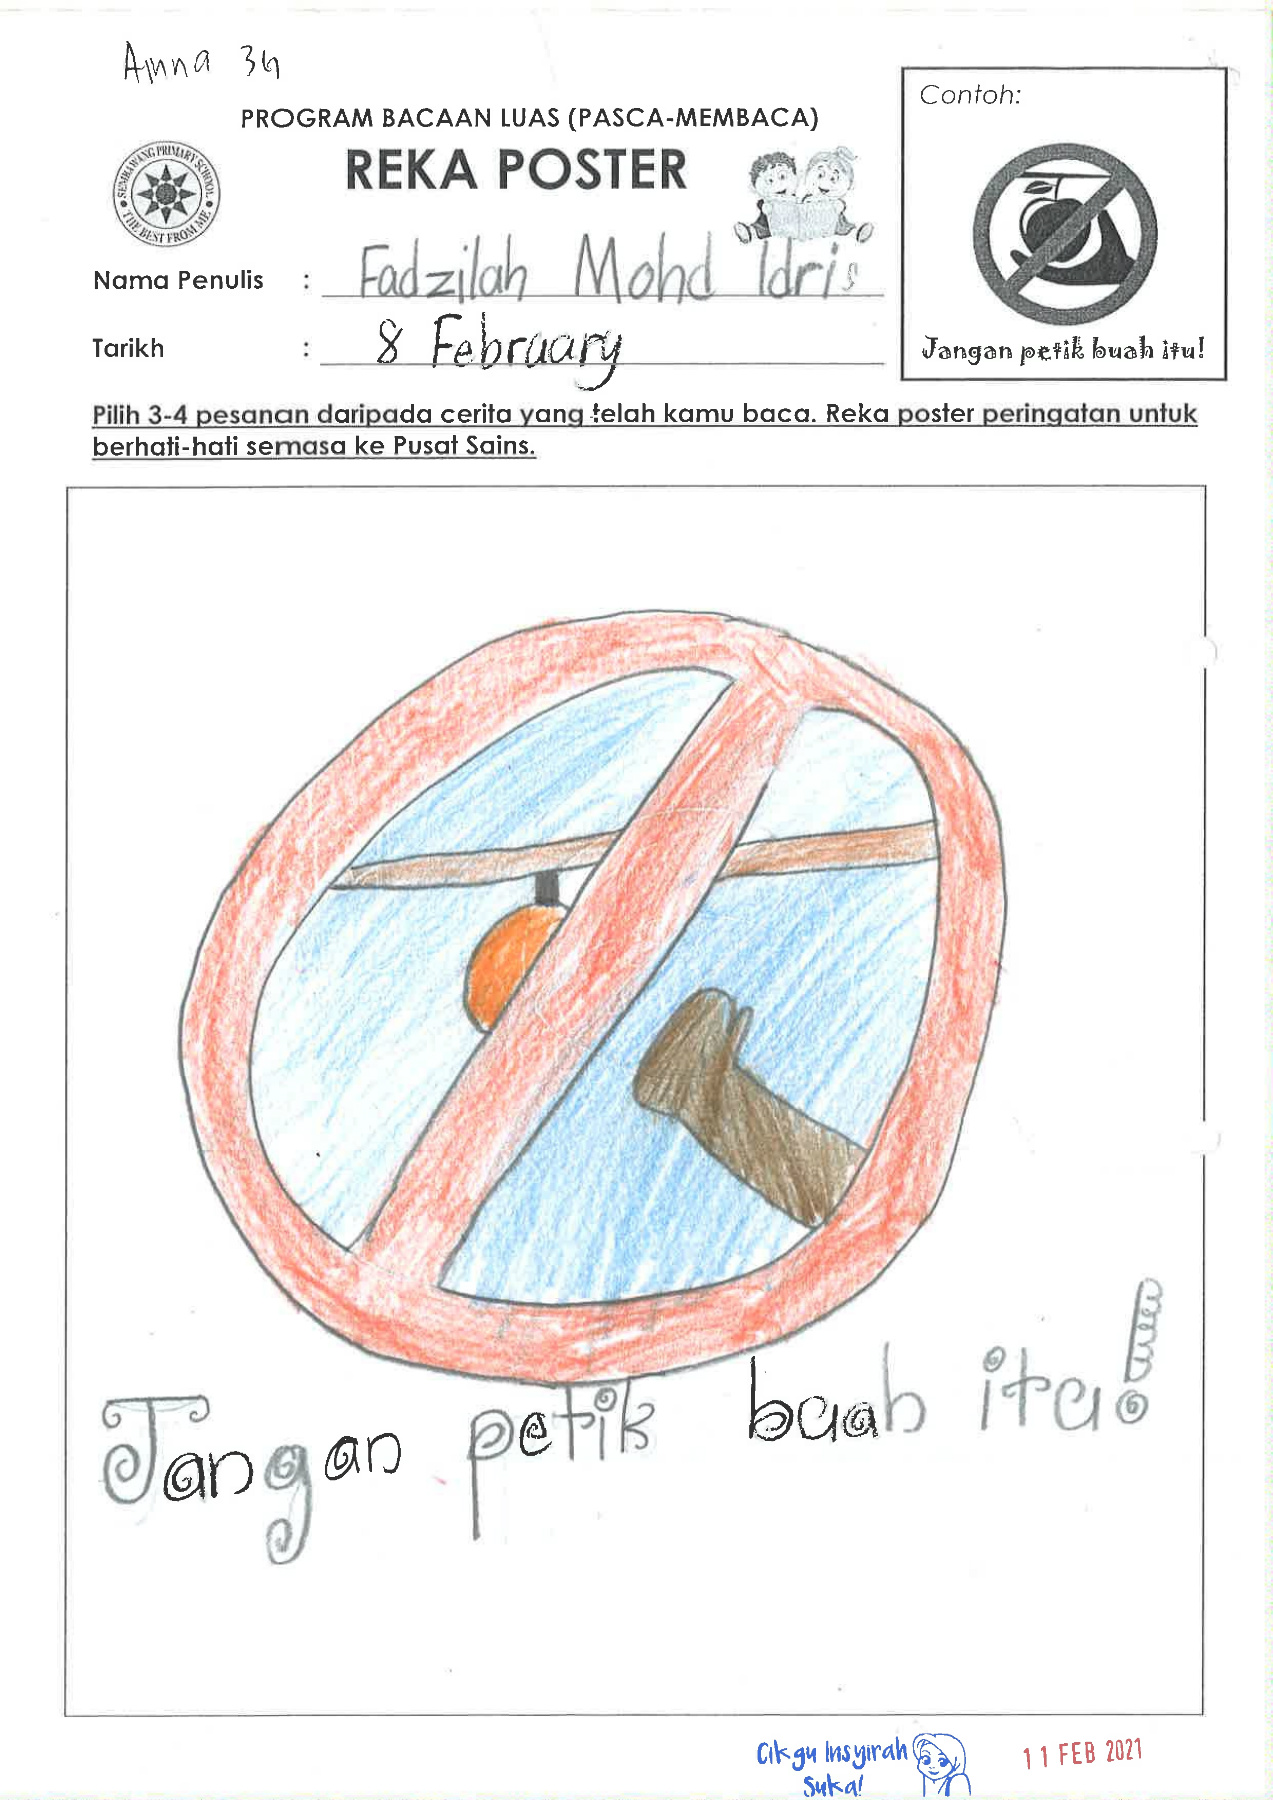 Amna 3H
PROGRAM BACAAN LUAS (PASCA-MEMBACA)
REKA POSTER
SEMBAWANG PRIMARY SCHOOL
THE BEST FROM ME
Nama Penulis : Fadzilah Mohd Idris
Tarikh : 8 February
Contoh:
Jangan petik buah itu!
Pilih 3-4 pesanan daripada cerita yang telah kamu baca. Reka poster peringatan untuk
berhati-hati semasa ke Pusat Sains.
Jangan petik buah itu!
Cikgu Insyirah
Suka!
11 FEB 2021